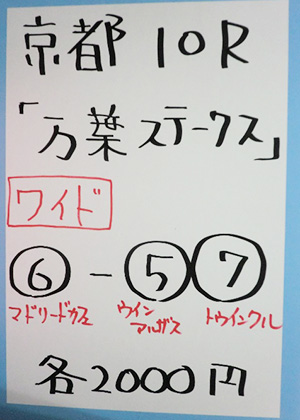 京都 10R
「万葉ステークス」
ワイド
⑥ - ⑤ ⑦
マドリードカフェ ウイン アルザス トウインクル
各2000円